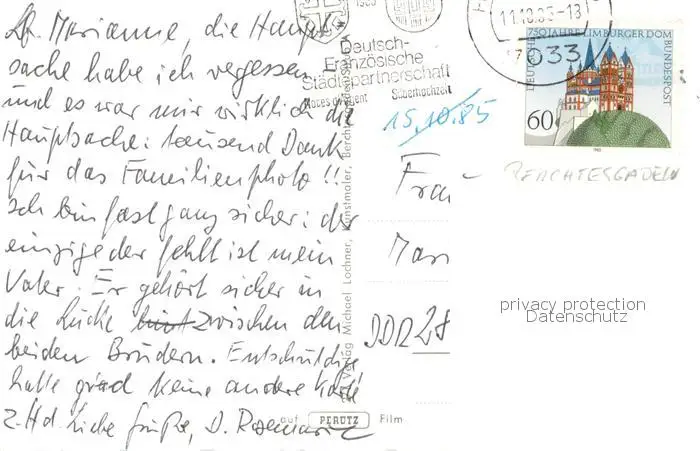 Lb. Marianne, die Haupt-
sache habe ich vergessen
und es war mir wirklich die
Hauptsache: tausend Dank
für das Familienphoto!!
Ich bin fast ganz sicher: der
einzige der fehlt ist mein
Vater. Er gehört sicher in
die Lücke zwischen den
beiden Brüdern. Entschuldige
hatte grad keine andere Karte
z. Hd. liebe Grüße, D. Rosemarie
Deutsch-
Französische
Städtepartnerschaft
Silberhochzeit
11.10.85-13
7033
750 JAHRE LIMBURGER DOM
DEUTSCHE BUNDESPOST
60
15.10.85
BERCHTESGADEN
Frau
Mari
DDR 28
Verlag Michael Lochner, Kunstmaler, Berchtesgaden
auf PERUTZ Film
privacy protection
Datenschutz